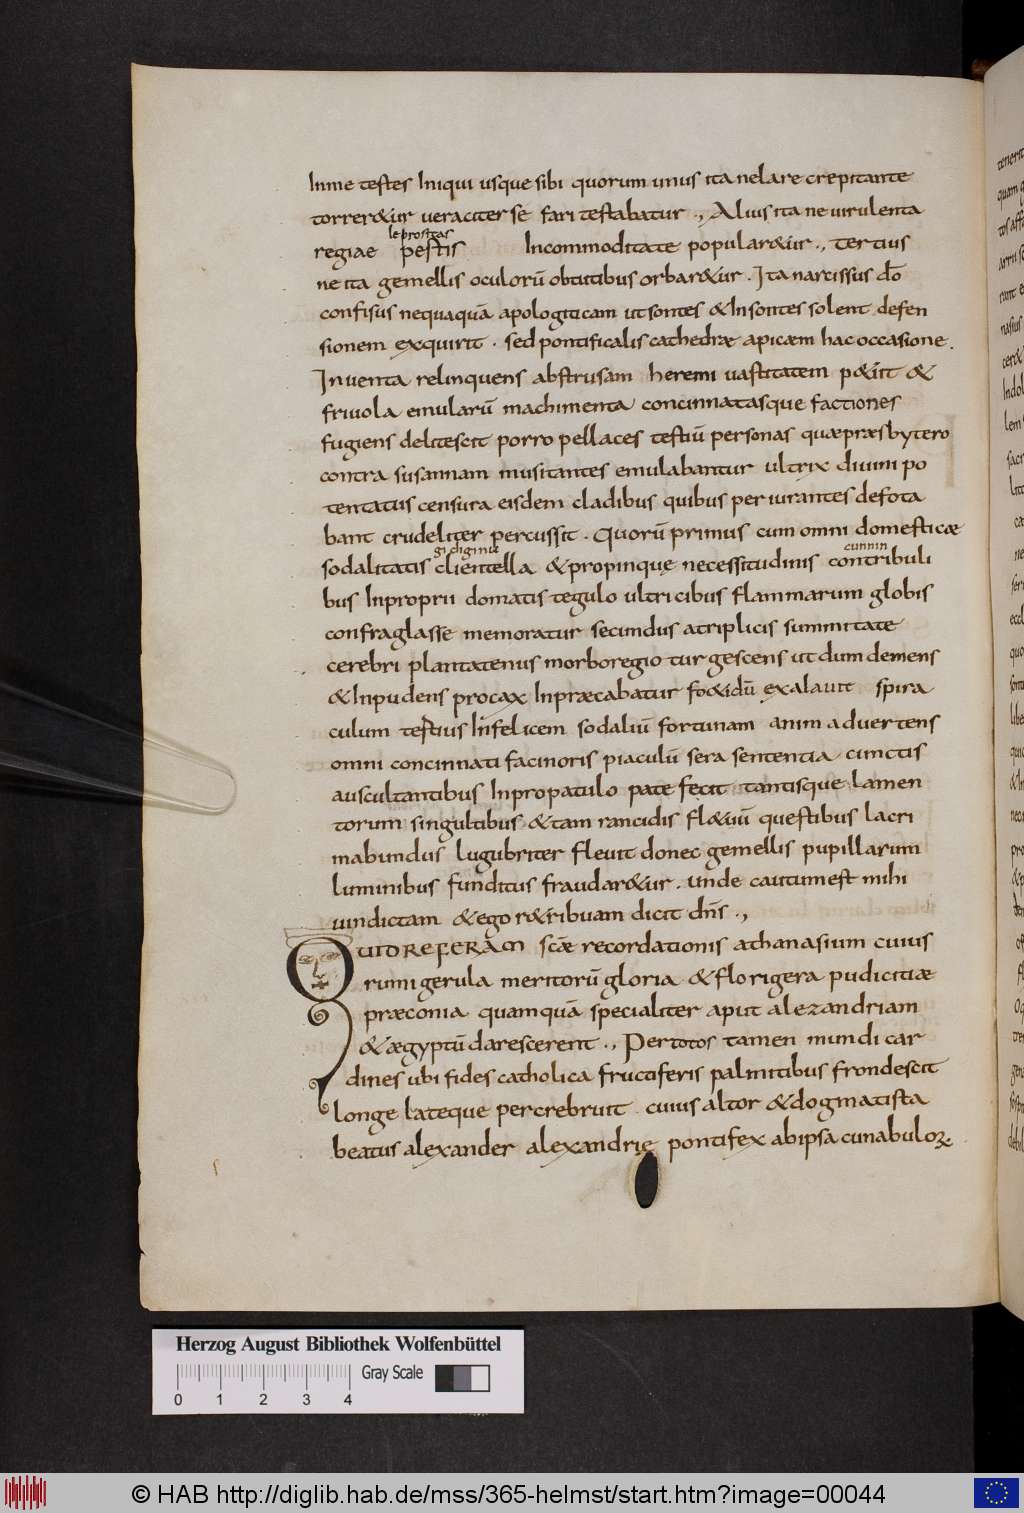 Inme testes Iniqui usque sibi quorum unus ita nelare crepitante
torrer&ur veraciter se fari testabatur ., Alius ita ne virulenta
leprositas
regiae pestis Incommoditate popular&ur ., tertius
ne ita gemellis oculorū obtutibus orbar&ur . Ita narcissus dō
confisus nequaquā apologiticam ut sontes & Insontes solent defen
sionem exquirit . sed pontificalis cathedræ apicæm hac occasione .
Inventa relinquens abstrusam heremi vastitatem p&iit &
frivola emularū machimenta concinnatasque factiones
fugiens delitescit porro pellaces testiū personas quæ præsbytero
contra susannam musitantes emulabantur ultrix divini po
tentatus censura eisdem cladibus quibus periurantes devota
bant crudeliter percussit . Quorū primus cum omni domesticæ
sodalitatis clientella & propinquę necessitudinis contribuli
bus Inproprii domatis tegulo ultricibus flammarum globis
confraglasse memoratur secundus atriplicis summitate
cerebri plantatenus morboregio turgescens ut dum demens
& Inpudens procax Inpræcabatur fo&idū exalavit spira
culum testius Infelicem sodaliū fortunam animadvertens
omni concinnati facinoris piaculū sera sententia cunctis
auscultantibus Inpropatulo patefecit tantisque lamen
torum singultibus & tam rancidis fl&uū questibus lacri
mabundus lugubriter flevit donec gemellis pupillarum
luminibus funditus fraudar&ur . unde cautum est mihi
vindictam & ego r&ribuam dicit dn̄s .,
QUID REFERAM scæ recordationis athanasium cuius
rumigerula meritorū gloria & florigera pudicitiæ
præconia quamquā specialiter aput alexandriam
& ægyptū clarescerent ., Per totos tamen mundi car
dines ubi fides catholica fructiferis palmitibus frondescit
longe lateque percrebruit cuius altor & dogmatista
beatus alexander alexandrię pontifex ab ipsa cunabuloꝝ
Herzog August Bibliothek Wolfenbüttel
Gray Scale
0 1 2 3 4
© HAB http://diglib.hab.de/mss/365-helmst/start.htm?image=00044